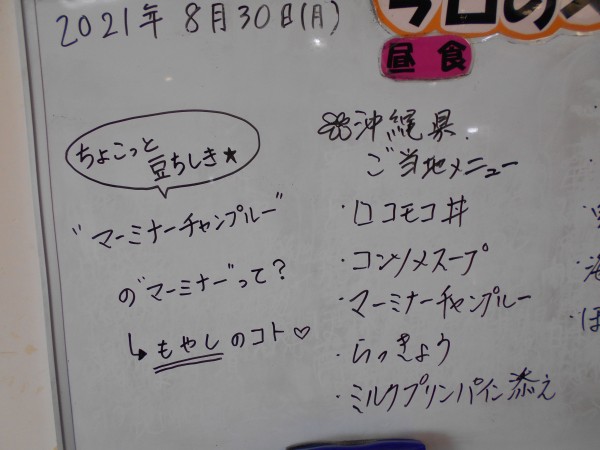 2021年 8月30日(月)
今日の
昼食
ちょこっと
豆ちしき★
"マーミナーチャンプルー"
の"マーミナー"って?
↳もやしのコト♡
沖縄県
ご当地メニュー
・ロコモコ丼
・コンソメスープ
・マーミナーチャンプルー
・らっきょう
・ミルクプリンパイン添え